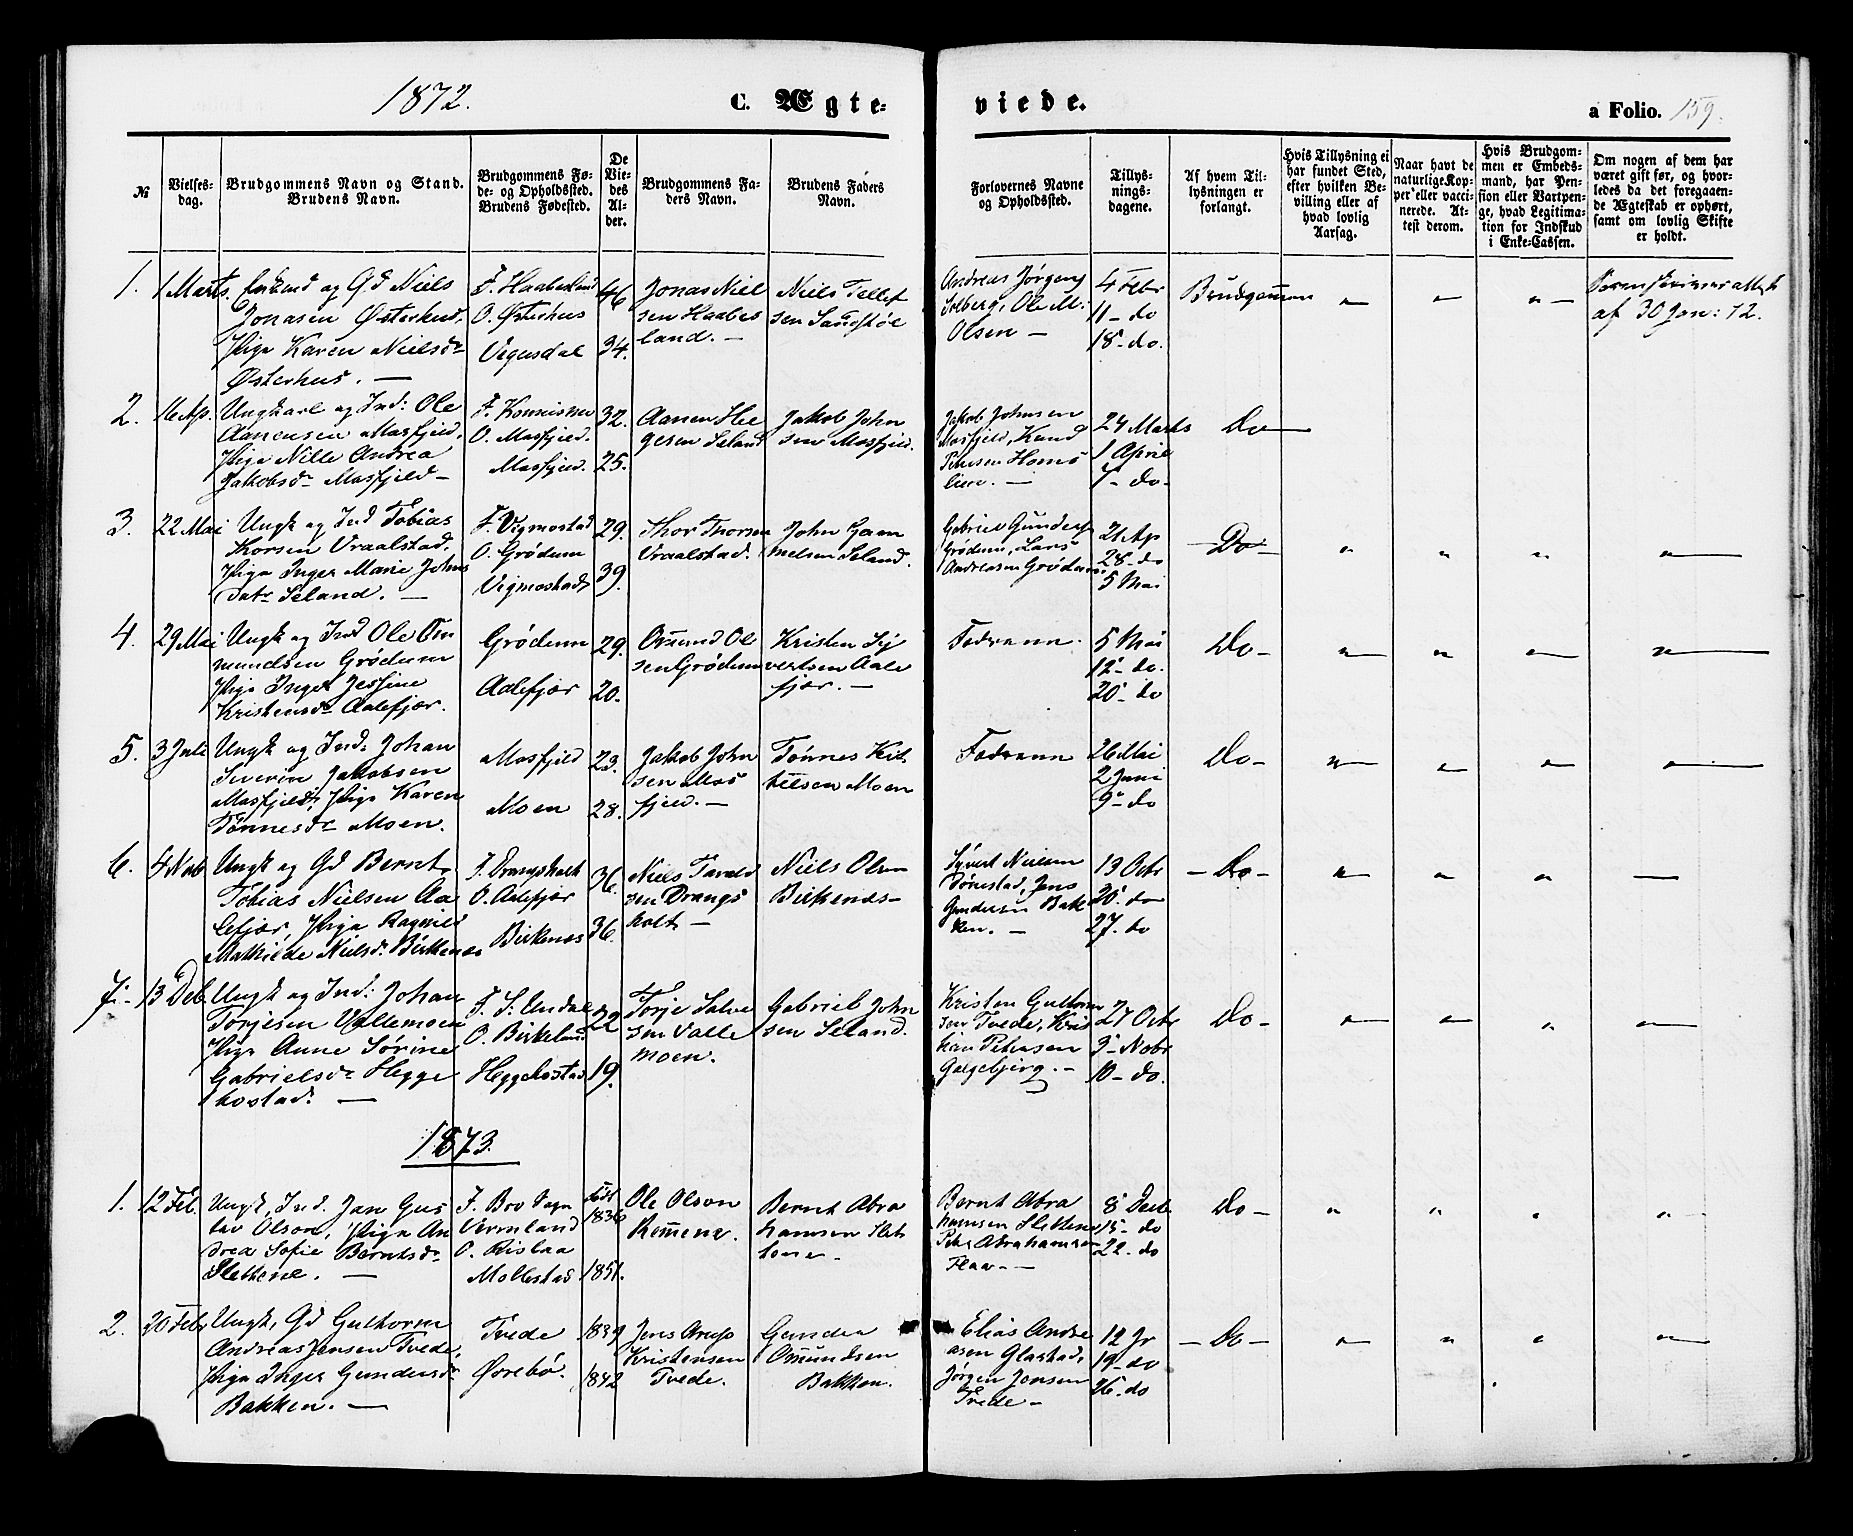 1872.
C. Ægte-
viede.
a Folio. 159.
№
Vielses-
dag.
Brudgommens Navn og Stand.
Brudens Navn.
Brudgommens Fø-
de- og Opholdssted.
Brudens Fødested.
De
Vie-
des
Al-
der.
Brudgommens Fa-
ders Navn.
Brudens Faders
Navn.
Forlovernes Navne
og Opholdssted.
Tillys-
nings-
dagene.
Af hvem Til-
lysningen er
forlangt.
Hvis Tillysning ei
har fundet Sted,
efter hvilken Be-
villing eller af
hvad lovlig
Aarsag.
Naar havt de
naturlige Kop-
per eller vacci-
nerede. At-
test derom.
Hvis Brudgom-
men er Embeds-
mand, har Pen-
sion eller Vartpen-
ge, hvad Legitima-
tion for Indskud
i Enke-Cassen.
Om nogen af dem har
været gift før, og hvor-
ledes da det foregaaen-
de Ægteskab er ophørt,
samt om lovlig Skifte
er holdt.
1.
1 Marts.
og Gd Niels
Jonasen Østerhus,
Pige Karen Nielsdr
Østerhus. —
F. Haabesland
O. Østerhus
Vegusdal
46
34.
Jonas Niel
sen Haabes
land. —
Niels Tellef
sen Sandtøe
Andreas Jørgens
Solberg, Ole M:
Olsen —
4 Febr
11 – do
18 – do.
Brudgommen
" " "
af 30 Jan: 72.
2.
16 Ap.
Ungkarl og Ind: Ole
Aanensen Mosfjeld.
Pige Nille Andrea
Jakobsdr Mosfjeld –
F.
O. Mosfjeld.
Mosfjeld.
32.
25.
Aanen He
gesen Seland
Jakob John
sen Mosfjeld.
Jakob Johnsen
Mosfjeld, Knud
Petersen Homs
lien. —
24 Marts
1 April
7 – do –
Do
3.
22 Mai
Ungk og Ind Tobias
Thorsen Vraalstad.
Pige Inger Marie Johns
datr Seland. —
F. Vigmostad
O. Grødum
Vigmostad
29.
39.
Thor Thorsen
Vraalstad.
John Gam
melsen Seland.
Gabriel Gunders
Grødum, Lars
Andreasen Grødum
21 Ap
28 – do
5 Mai
– Do –
" " " "
4.
29 Mai
Ungk og Ind Ole Om
mundsen Grødum
Pige Inger Jessine
Kristensdr Aalefjær.
Grødum
Aalefjær
29.
20.
Omund Ol
sen Grødum
Kristen Sy
vertsen Aale
fjær. —
Fædrene.
5 Mai
12 – do.
20 – do
Do –
" " " "
5.
3 Juli
Ungk og Ind: Johan
Severin Jakobsen
Mosfjeld, Pige Karen
Tønnesdr Moen.
Mosfjeld
Moen
23.
28.
Jakob John
sen Mos
fjeld. —
Tønnes Kit
telsen Moen
Fædrene
26 Mai
2 Juni
9 – do
Do –
" " " "
6.
4 Nvb
Ungk og Gd Bernt
Tobias Nielsen Aa
lefjær, Pige Ragnild
Mathilde Nielsdr Birkenes
F. Drangsholt
O. Aalefjær
Birkenes
36.
36.
Niels Tarald
sen Drangs
holt –
Niels Olsen
Birkenes –
Syvert Nielsen
Tønestad, Jens
Gundersen Bak
ken. —
13 Octr
20. do
27. do
– Do –
" " " —
7. –
13 Deb.
Ungk og Ind: Johan
Torjesen Vallemoen
Pige Anne Sørine
Gabrielsdr Hegge
kostad. —
F. S: Undal
O. Birkeland
Heggekostad
22
19.
Torje Salve
sen Valle
moen.
Gabriel John
sen Seland.
Kristen Guttorm
sen Tvede, Kris
tian Petersen
Galgebjerg. —
27 Octr
3 – Nobr
10 – do.
Do –
" " " "
1873.
1.
12 Feb.
Ungk, Ind. Jan Gus
tav Olson, Pige An
drea Sofie Berntsdr
Slettene. —
F. Bro Sogn
Vermland
O. Rislaa
Mollestad
Født
1836
1851.
Ole Olson
Remene.
Bernt Abra
hamsen Slet
tene –
Bernt Abra
hamsen Slettene
Peter Abrahamsen
Flaa – –
8 Decb.
15 – do
22 – do
Do –
" " " "
2.
20 Febr
Ungk, Gd Guttorm
Andreas Jensen Tvede,
Pige Inger Gundersdr
Bakken. —
Tvede
Ørebø.
1839
1842
Jens Arup
Kristensen
Tvede.
Gunder
Omundsen
Bakken.
Elias Andre
asen Glastad,
Jørgen Jensen
Tvede –
12 Jr
19 – do
26 – do
– Do –
" " " "